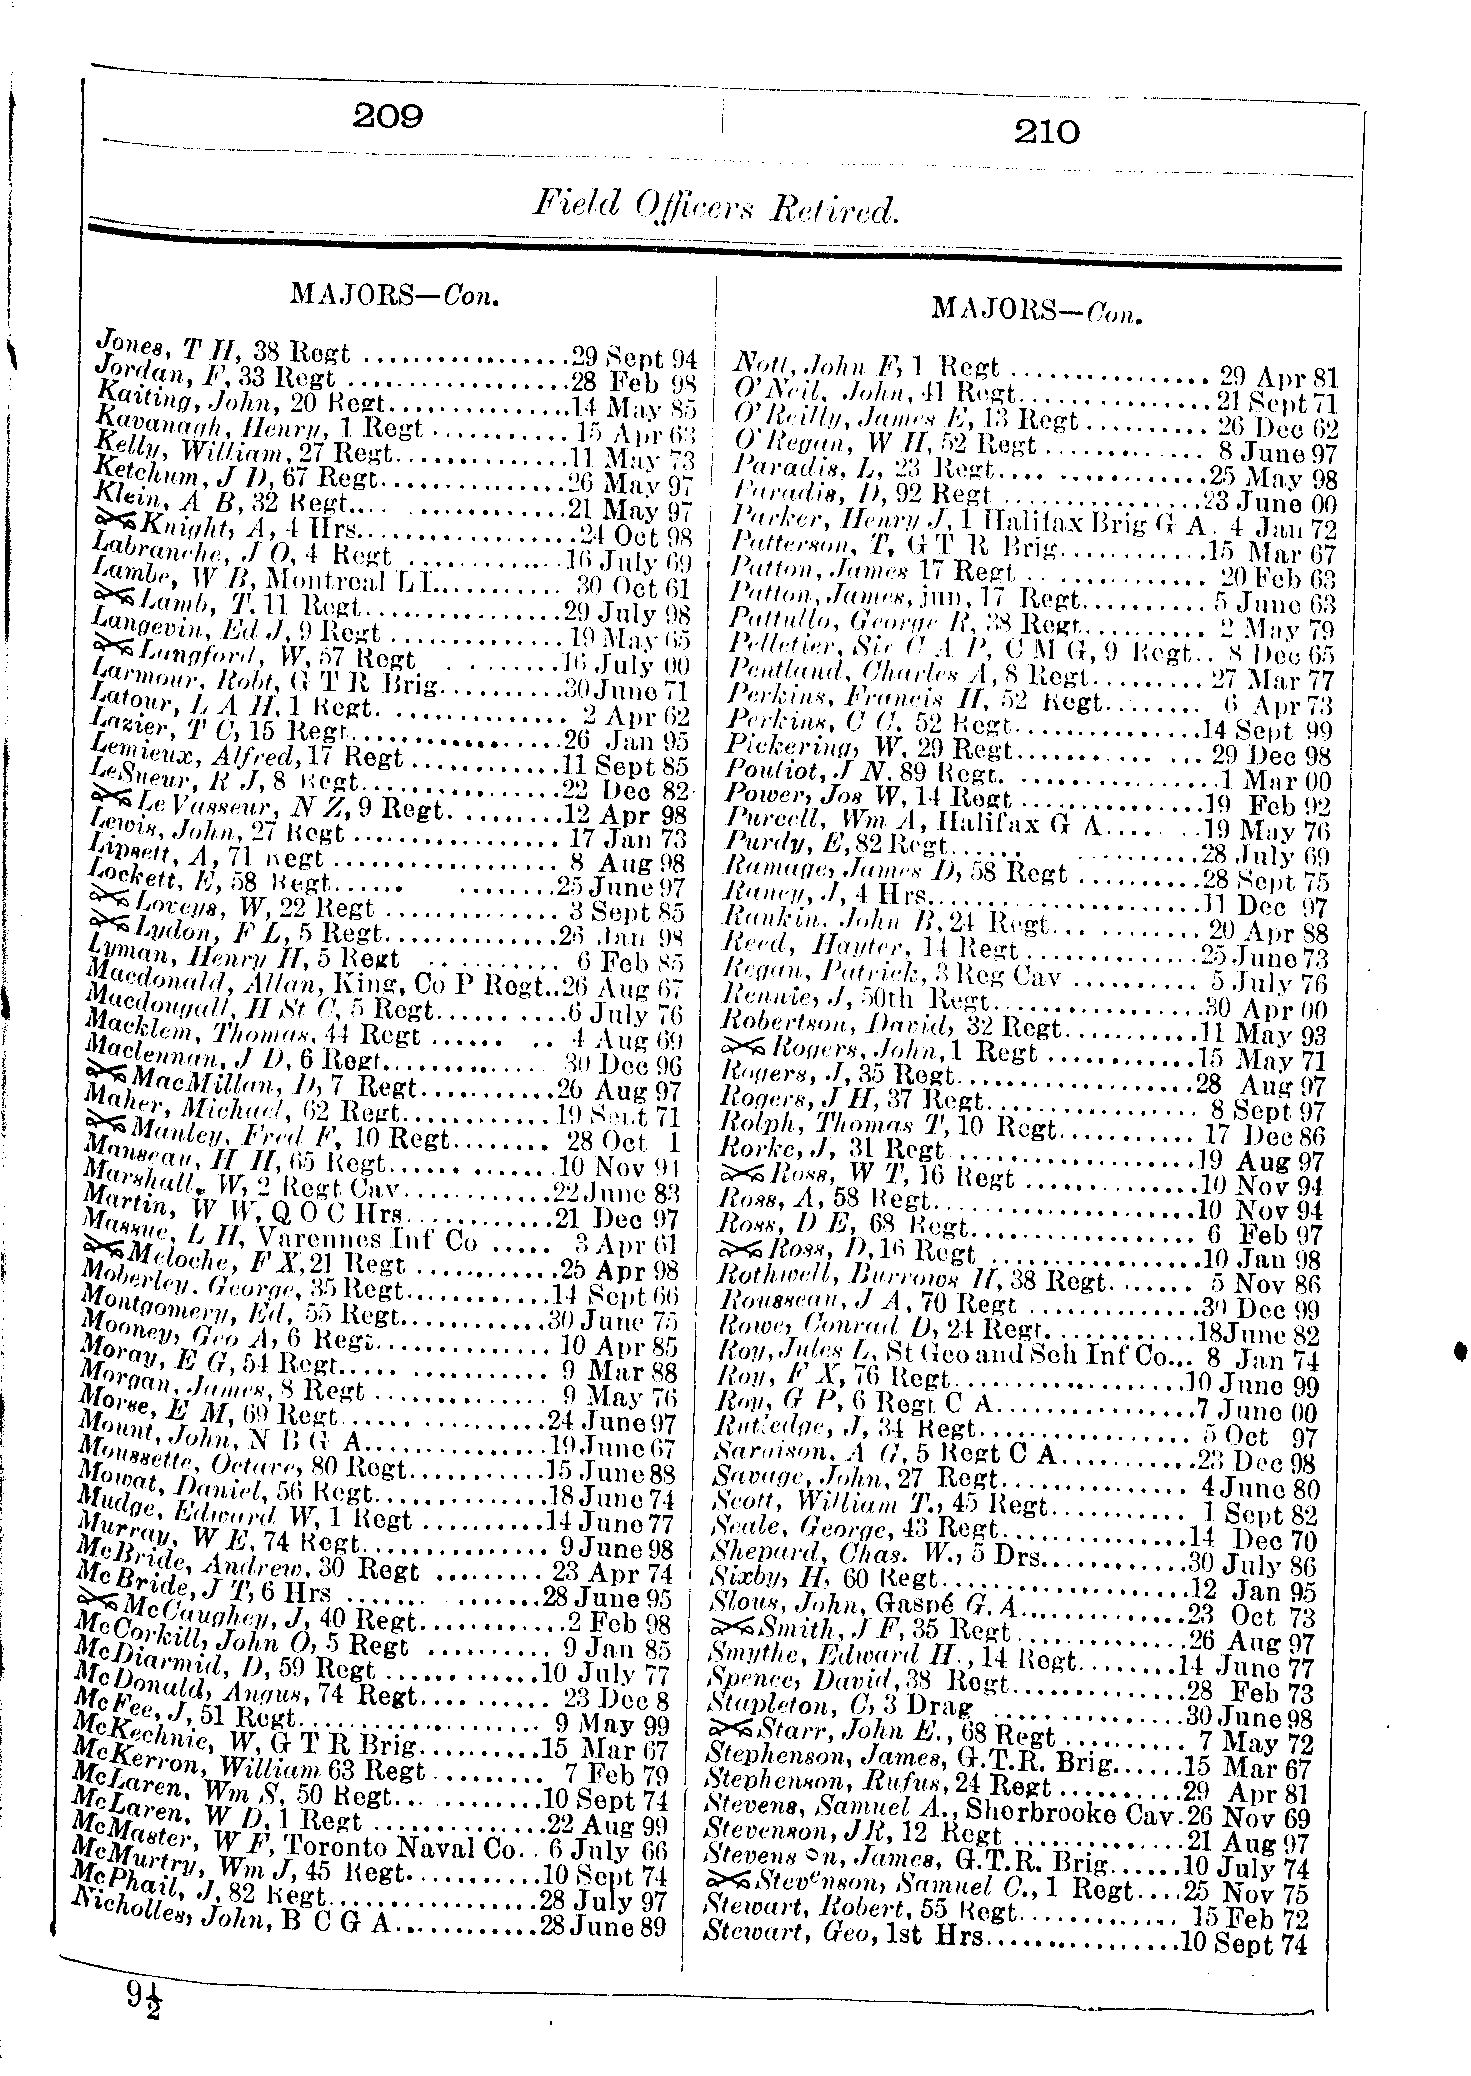 209
210
Field Officers Retired.
MAJORS—Con.
Jones, T H, 38 Regt ..................29 Sept 94
Jordan, F, 33 Regt ...................28 Feb 98
Kaiting, John, 20 Regt................14 May 85
Kavanagh, Henry, 1 Regt ............15 Apr 63
Kelly, William, 27 Regt...............11 May 73
Ketchum, J D, 67 Regt................26 May 97
Klein, A B, 32 Regt...................21 May 97
Knight, A, 4 Hrs....................24 Oct 98
Labranche, J O, 4 Regt ..............16 July 69
Lambe, W B, Montreal L I............30 Oct 61
Lamb, T. 11 Regt..................29 July 98
Langevin, Ed J, 9 Regt ...............19 May 65
Langford, W, 57 Regt ..........16 July 00
Larmour, Robt, G T R Brig..........30 June 71
Latour, L A H, 1 Regt. ............... 2 Apr 62
Lazier, T C, 15 Regt..................26 Jan 95
Lemieux, Alfred, 17 Regt .............11 Sept 85
LeSueur, R J, 8 Regt..................22 Dec 82
Le Vasseur, N Z, 9 Regt..........12 Apr 98
Lewis, John, 27 Regt .................. 17 Jan 73
Lipsett, A, 71 Regt .................... 8 Aug 98
Lockett, E, 58 Regt...... ........25 June 97
Loveys, W, 22 Regt ............... 3 Sept 85
Lydon, F L, 5 Regt...............26 Jan 98
Lyman, Henry H, 5 Regt ............ 6 Feb 85
Macdonald, Allan, King, Co P Regt..26 Aug 67
Macdougall, H St C, 5 Regt...........6 July 76
Macklem, Thomas, 44 Regt ...... .. 4 Aug 69
Maclennan, J D, 6 Regt...............30 Dec 96
MacMillan, D, 7 Regt............26 Aug 97
Maher, Michael, 62 Regt.............19 Sept 71
Manley, Fred F, 10 Regt........ 28 Oct 1
Manseau, H H, 65 Regt..............10 Nov 94
Marshall, W, 2 Regt Cav.............22 June 83
Martin, W W, Q O C Hrs.............21 Dec 97
Massue, L H, Varennes Inf Co ..... 3 Apr 61
Meloche, F X, 21 Regt ............25 Apr 98
Moberley, George, 35 Regt............14 Sept 66
Montgomery, Ed, 55 Regt.............30 June 75
Mooney, Geo A, 6 Regt................ 10 Apr 85
Moray, E G, 54 Regt................... 9 Mar 88
Morgan, James, 8 Regt ................ 9 May 76
Morse, E M, 69 Regt..................24 June 97
Mount, John, N B G A................19 June 67
Moussette, Octave, 80 Regt............15 June 88
Mowat, Daniel, 56 Regt...............18 June 74
Mudge, Edward W, 1 Regt ...........14 June 77
Murray, W E, 74 Regt................ 9 June 98
McBride, Andrew, 30 Regt .......... 23 Apr 74
McBride, J T, 6 Hrs ..................28 June 95
McCaughey, J, 40 Regt.............2 Feb 98
McCorkill, John O, 5 Regt ........... 9 Jan 85
McDiarmid, D, 59 Regt ..............10 July 77
McDonald, Angus, 74 Regt........... 23 Dec 8
McFee, J, 51 Regt..................... 9 May 99
McKechnie, W, G T R Brig...........15 Mar 67
McKerron, William 63 Regt.......... 7 Feb 79
McLaren, Wm S, 50 Regt.............10 Sept 74
McLaren, W D, 1 Regt ...............22 Aug 99
McMaster, W F, Toronto Naval Co.. 6 July 66
McMurtry, Wm J, 45 Regt............10 Sept 74
McPhail, J, 82 Regt...................28 July 97
Nicholles, John, B C G A.............28 June 89
9½
MAJORS—Con.
Nott, John F, 1 Regt .................. 29 Apr 81
O'Neil, John, 41 Regt.................21 Sept 71
O'Reilly, James E, 13 Regt........... 26 Dec 62
O'Regan, W H, 52 Regt .............. 8 June 97
Paradis, L, 23 Regt.... .............25 May 98
Paradis, D, 92 Regt ..................23 June 00
Parker, Henry J, 1 Halifax Brig G A. 4 Jan 72
Patterson, T, G T R Brig.............15 Mar 67
Patton, James 17 Regt ................ 20 Feb 63
Patton, James, jun, 17 Regt........... 5 June 63
Pattullo, George R, 38 Regt........... 2 May 79
Pelletier, Sir C A P, C M G, 9 Regt.. 8 Dec 65
Pentland, Charles A, 8 Regt.......... 27 Mar 77
Perkins, Francis H, 52 Regt......... 6 Apr 73
Perkins, C C, 52 Regt................14 Sept 99
Pickering, W, 29 Regt................ 29 Dec 98
Pouliot, J N. 89 Regt. ................1 Mar 00
Power, Jos W, 14 Regt................19 Feb 92
Purcell, Wm A, Halifax G A.........19 May 76
Purdy, E, 82 Regt...... ...........28 July 69
Ramage, James D, 58 Regt ...........28 Sept 75
Raney, J, 4 Hrs.......................11 Dec 97
Rankin, John B, 24 Regt.............. 20 Apr 88
Reed, Hayter, 14 Regt................25 June 73
Regan, Patrick, 3 Reg Cav ........... 5 July 76
Rennie, J, 50th Regt..................30 Apr 00
Robertson, David, 32 Regt............11 May 93
Rogers, John, 1 Regt .............15 May 71
Rogers, J, 35 Regt....................28 Aug 97
Rogers, J H, 37 Regt.................. 8 Sept 97
Rolph, Thomas T, 10 Regt............ 17 Dec 86
Rorke, J, 31 Regt.....................19 Aug 97
Ross, W T, 16 Regt ...............10 Nov 94
Ross, A, 58 Regt......................10 Nov 94
Ross, D E, 68 Regt.................... 6 Feb 97
Ross, D, 16 Regt ..................10 Jan 98
Rothwell, Burrows H, 38 Regt....... 5 Nov 86
Rousseau, J A, 70 Regt ...............30 Dec 99
Rowe, Conrad D, 24 Regt.............18 June 82
Roy, Jules L, St Geo and Sch Inf Co... 8 Jan 74
Roy, F X, 76 Regt....................10 June 99
Roy, G P, 6 Regt C A.................7 June 00
Rutledge, J, 34 Regt................... 5 Oct 97
Sarnison, A G, 5 Regt C A............23 Dec 98
Savage, John, 27 Regt................. 4 June 80
Scott, William T., 45 Regt............ 1 Sept 82
Seale, George, 43 Regt................14 Dec 70
Shepard, Chas. W., 5 Drs............30 July 86
Sixby, H, 60 Regt.....................12 Jan 95
Slous, John, Gaspé G. A..............23 Oct 73
Smith, J F, 35 Regt ...............26 Aug 97
Smythe, Edward H., 14 Regt........14 June 77
Spence, David, 38 Regt...............28 Feb 73
Stapleton, C, 3 Drag .................30 June 98
Starr, John E., 68 Regt ........... 7 May 72
Stephenson, James, G.T.R. Brig......15 Mar 67
Stephenson, Rufus, 24 Regt ..........29 Apr 81
Stevens, Samuel A., Sherbrooke Cav.26 Nov 69
Stevenson, J R, 12 Regt ..............21 Aug 97
Stevenson, James, G.T.R. Brig......10 July 74
Stevenson, Samuel C., 1 Regt....25 Nov 75
Stewart, Robert, 55 Regt.............. 15 Feb 72
Stewart, Geo, 1st Hrs.................10 Sept 74